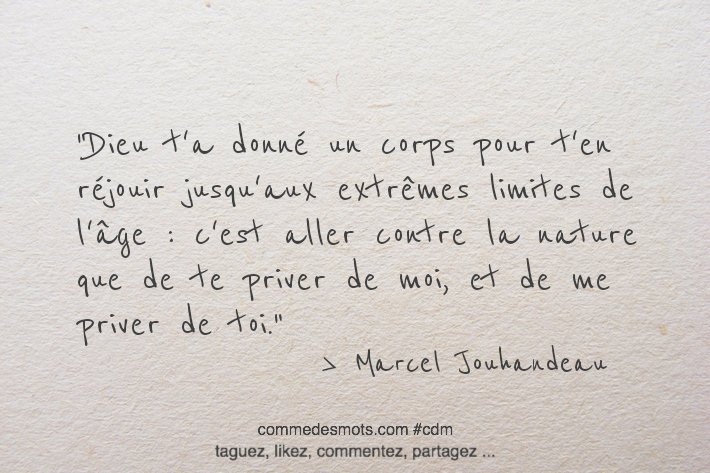 "Dieu t'a donné un corps pour t'en
réjouir jusqu'aux extrêmes limites de
l'âge : c'est aller contre la nature
que de te priver de moi, et de me
priver de toi."
> Marcel Jouhandeau
commedesmots.com #cdm
taguez, likez, commentez, partagez ...